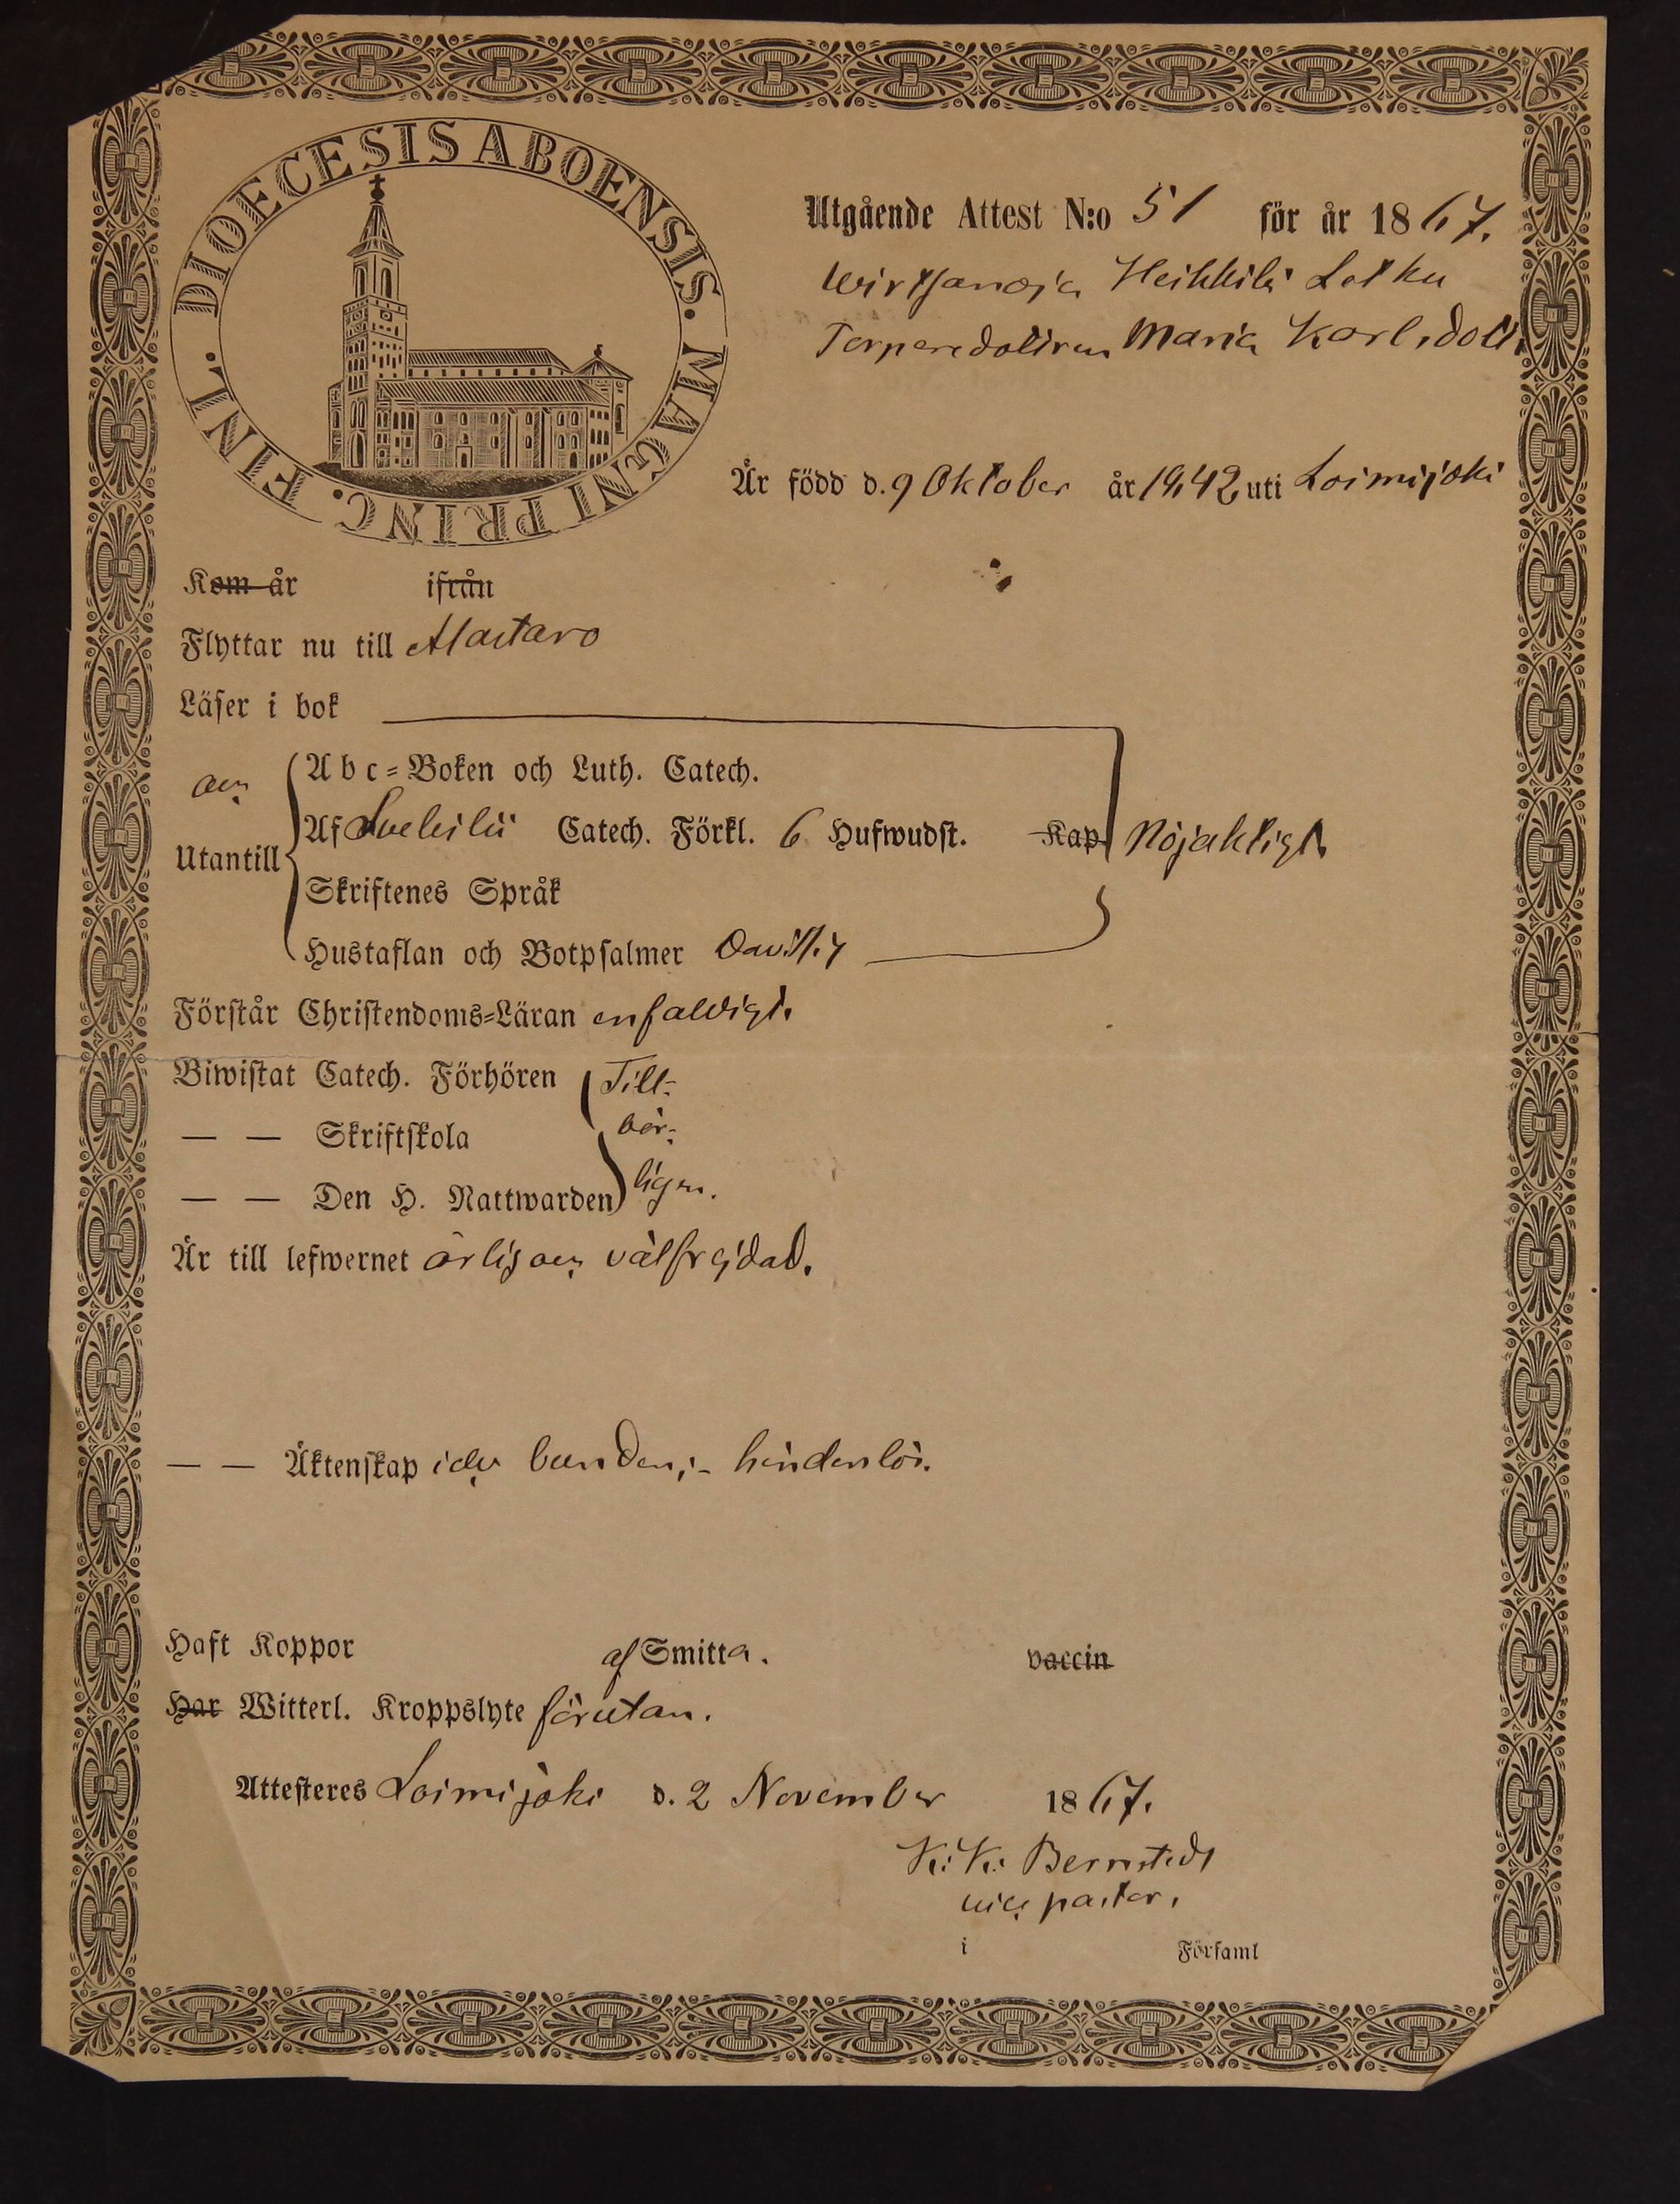 DIOECESIS ABOENSIS. MAGNI PRINC. FINL.
Utgående Attest N:o 51 för år 1867.
Wirtsanoja Heikkilä Letku
Torparedottren Maria Karlsdotr
Är född d. 9 Oktober år 1842 uti Loimijoki
Kom år ifrån
Flyttar nu till Alastaro
Läser i bok
och
Abc-Boken och Luth. Catech.
Af Svebilii Catech. Förkl. 6 Hufwudst. Kap. Nöjaktigt.
Utantill
Skriftenes Språk
Hustaflan och Botpsalmer Davids. 7
Förstår Christendoms-Läran enfaldigt.
Biwistat Catech. Förhören Till-
— — Skriftskola bör-
— — Den H. Nattwarden ligen.
Är till lefwernet ärlig och välfrejdad.
— — Äktenskap icke bunden;- hinderslös.
Haft Koppor af Smitta. vaccin
Har Witterl. Kroppslyte förutan.
Attesteres Loimijoki d. 2 November 1867.
K: K: Bernstedt
vice pastor.
i Församl